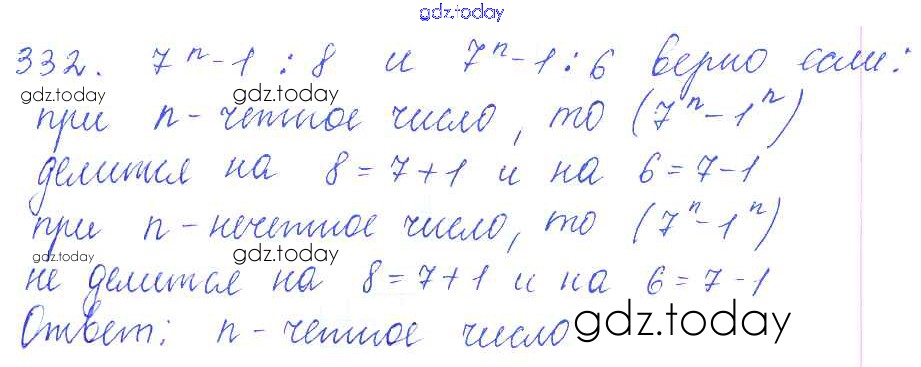 gdz.today
332. 7ⁿ-1 : 8 и 7ⁿ-1 : 6 верно если:
gdz.today gdz.today
при n - четное число, то (7ⁿ-1ⁿ)
делится на 8 = 7 + 1 и на 6 = 7 - 1
при n - нечетное число, то (7ⁿ-1ⁿ)
gdz.today gdz.today
не делится на 8 = 7 + 1 и на 6 = 7 - 1
Ответ: n - четное число gdz.today